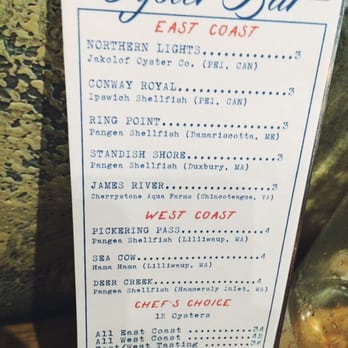 Oyster Bar
EAST COAST
NORTHERN LIGHTS..............3
Jakolof Oyster Co. (PEI, CAN)
CONWAY ROYAL.................3
Ipswich Shellfish (PEI, CAN)
RING POINT...................3
Pangea Shellfish (Damariscotta, ME)
STANDISH SHORE...............3
Pangea Shellfish (Duxbury, MA)
JAMES RIVER..................3
Cherrystone Aqua Farms (Chincoteague, VA)
WEST COAST
PICKERING PASS...............4
Pangea Shellfish (Lilliwaup, WA)
SEA COW......................4
Hama Hama (Lilliwaup, WA)
DEER CREEK...................4
Pangea Shellfish (Hammersly Inlet, WA)
CHEF'S CHOICE
12 Oysters
All East Coast ..............34
All West Coast ..............
East/West Tasting ...........36